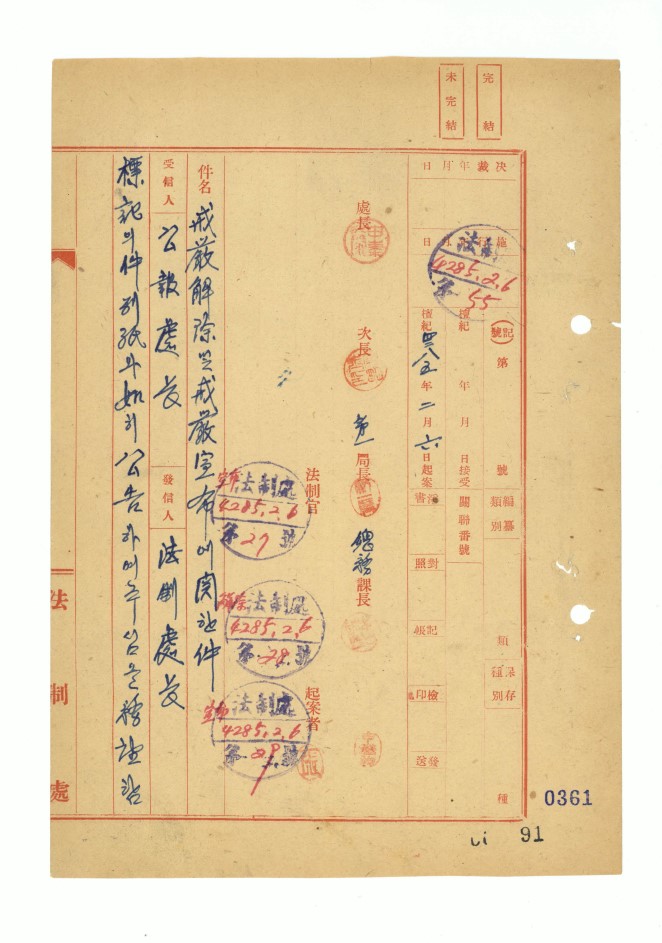 完結
未完結
決裁年月日
施行年月日
法制處
4285.2.6
第 55 號
記號
第 號
編纂類別 類
保存種別 種
檀紀 年 月 日接受
關聯番號
檀紀 四二八五年 二月 六日起案
淨書
對照
記帳
檢印
發送
處長
次長
第一局長
總務課長
法制官
起案者
宣布
法制處
4285.2.6
第 27 號
解除
法制處
4285.2.6
第 28 號
宣布
法制處
4285.2.6
第 29 號
件名 戒嚴解除및戒嚴宣布에関한件
受信人 公報處長 發信人 法制處長
標記의件別紙와如히公告하여주심을務望함
法制處
0361
91